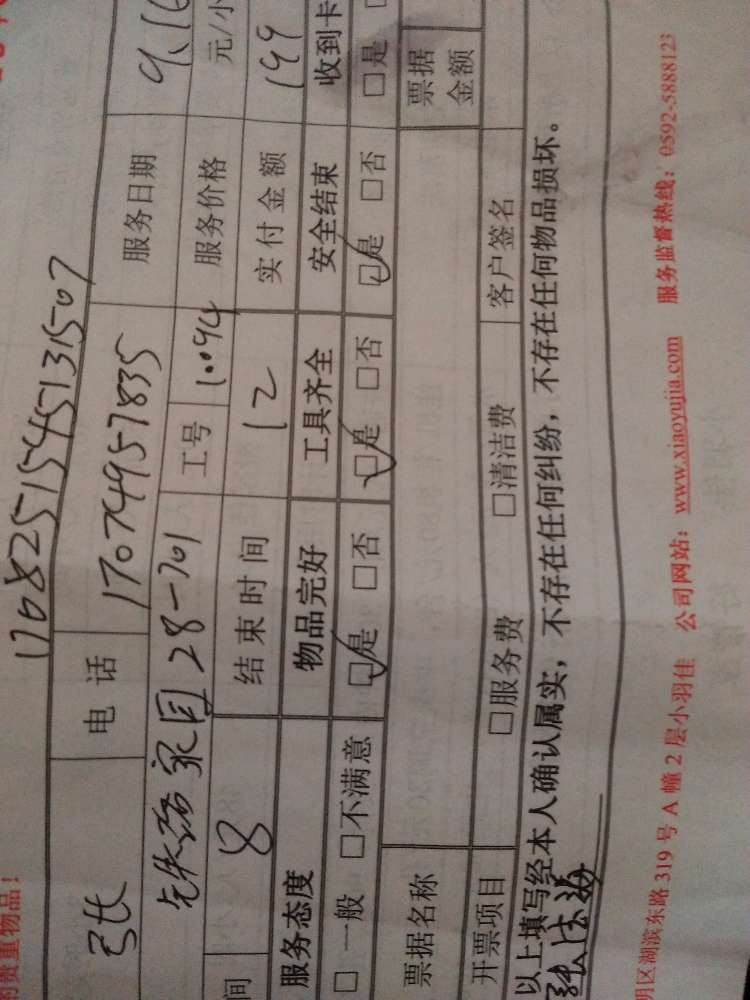 的贵重物品!
1708251545131507
张 电话 17074957835 服务日期 9.16
28-701 工号 10094 服务价格 元/小
间 8 结束时间 12 实付金额 199
服务态度 物品完好 工具齐全 安全结束 收到卡
□一般 □不满意 ☑是 □否 ☑是 □否 ☑是 □否 □是
票据名称 票据金额
开票项目 □服务费 □清洁费 客户签名
以上填写经本人确认属实，不存在任何纠纷，不存在任何物品损坏。
明区湖滨东路 319 号 A 幢 2 层小羽佳 公司网站：www.xiaoyujia.com 服务监督热线：0592-5888123